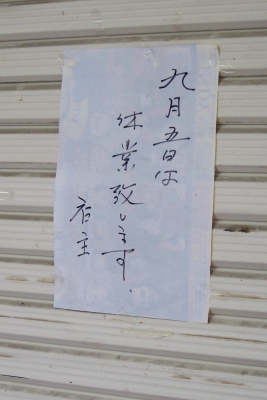 九月五日は
休業致します、
店主